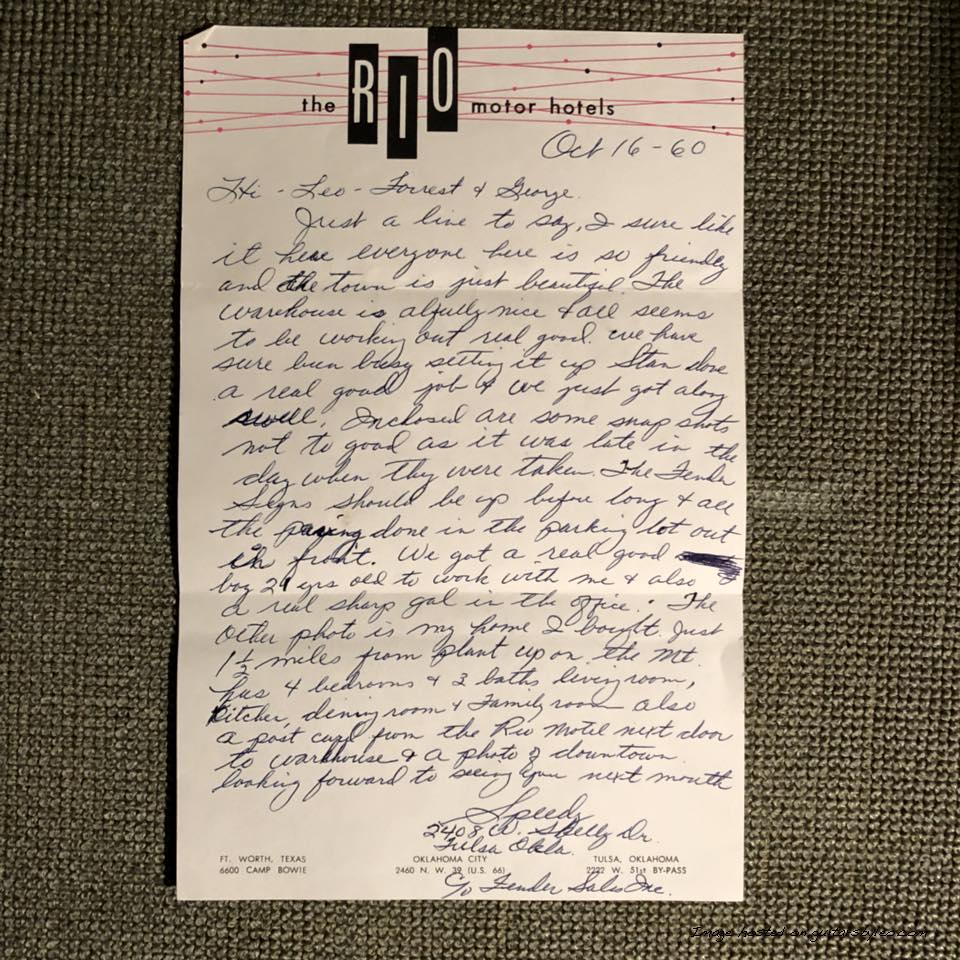 the RIO motor hotels
Oct 16-60
Hi - Leo - Forrest & George.
Just a line to say, I sure like
it here everyone here is so friendly
and the town is just beautiful. The
warehouse is alfully nice & all seems
to be working out real good. we have
sure been busy setting it up Stan done
a real good job & we just got along
swell. Inclosed are some snap shots
not to good as it was late in the
day when they were taken. The Fender
Signs should be up before long & all
the paving done in the parking lot out
in front. We got a real good
boy yrs old to work with me & also
a real sharp gal in the office. The
other photo is my home I bought. Just
1 1/2 miles from plant up on the Mt.
has 4 bedrooms & 3 baths living room,
kitchen, dining room & Family room also
a post card from the Rio Motel next door
to warehouse & a photo of downtown.
looking forward to seeing you next month
Speedy
2408 W. Skelly Dr.
Tulsa Okla.
FT. WORTH, TEXAS OKLAHOMA CITY TULSA, OKLAHOMA
6600 CAMP BOWIE 2460 N. W. 39 (U.S. 66) 2222 W. 51st BY-PASS
C/o Fender Sales Inc.
Image hosted on guitar-styles.com